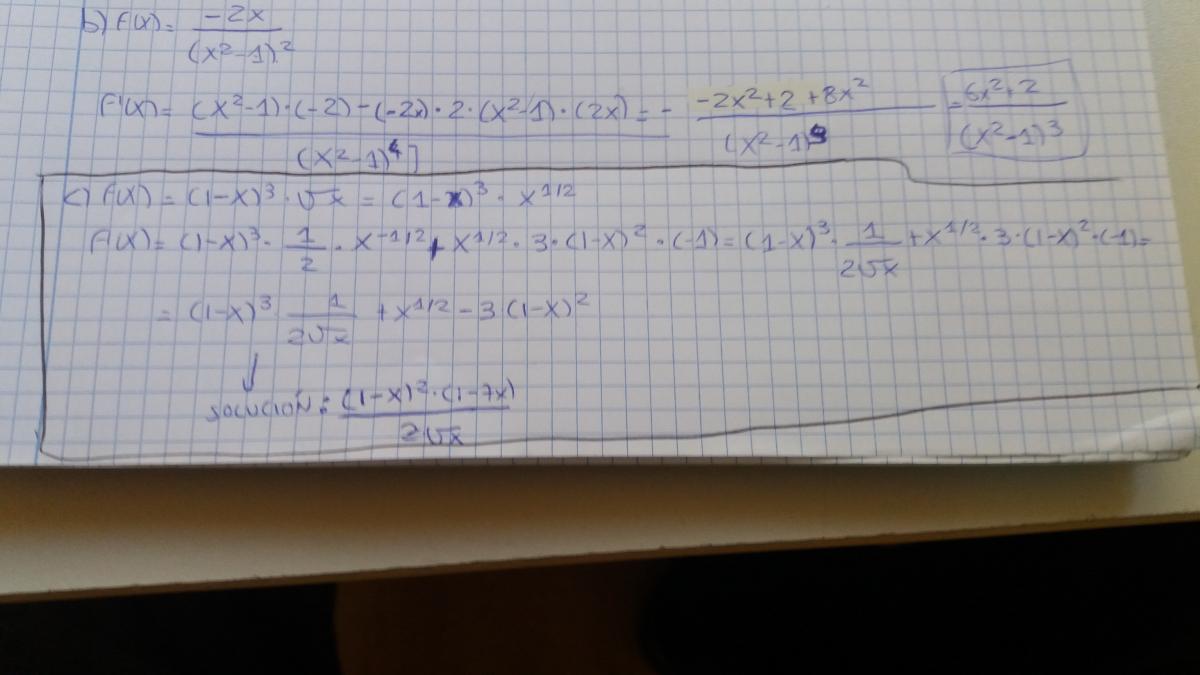 b) f(x) = -2x / (x²-1)²
f'(x) = (x²-1)·(-2)-(-2x)·2·(x²-1)·(2x) / (x²-1)⁴] = - -2x²+2+8x² / (x²-1)³ = 6x²+2 / (x²-1)³
c) f(x) = (1-x)³·√x = (1-x)³·x^1/2
f'(x) = (1-x)³·1/2·x^-1/2 + x^1/2·3·(1-x)²·(-1) = (1-x)³·1/2√x + x^1/2·3·(1-x)²·(-1) =
= (1-x)³ 1/2√x + x^1/2 - 3·(1-x)²
↓
SOLUCIÓN: (1-x)²·(1-7x) / 2√x